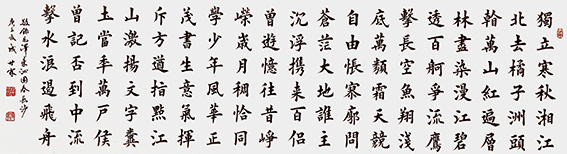 獨立寒秋湘江
北去橘子洲頭
萬山紅遍層
林盡染漫江碧
透百舸爭流鷹
擊長空魚翔淺
底萬類霜天競
自由悵寥廓問
蒼茫大地誰主
沉浮攜來百侶
曾遊憶往昔崢
嶸歲月稠恰同
學少年風華正
茂書生意氣揮
斥方遒指點江
山激揚文字糞
土當年萬戶侯
曾記否到中流
擊水浪遏飛舟
毛澤東沁園春長沙